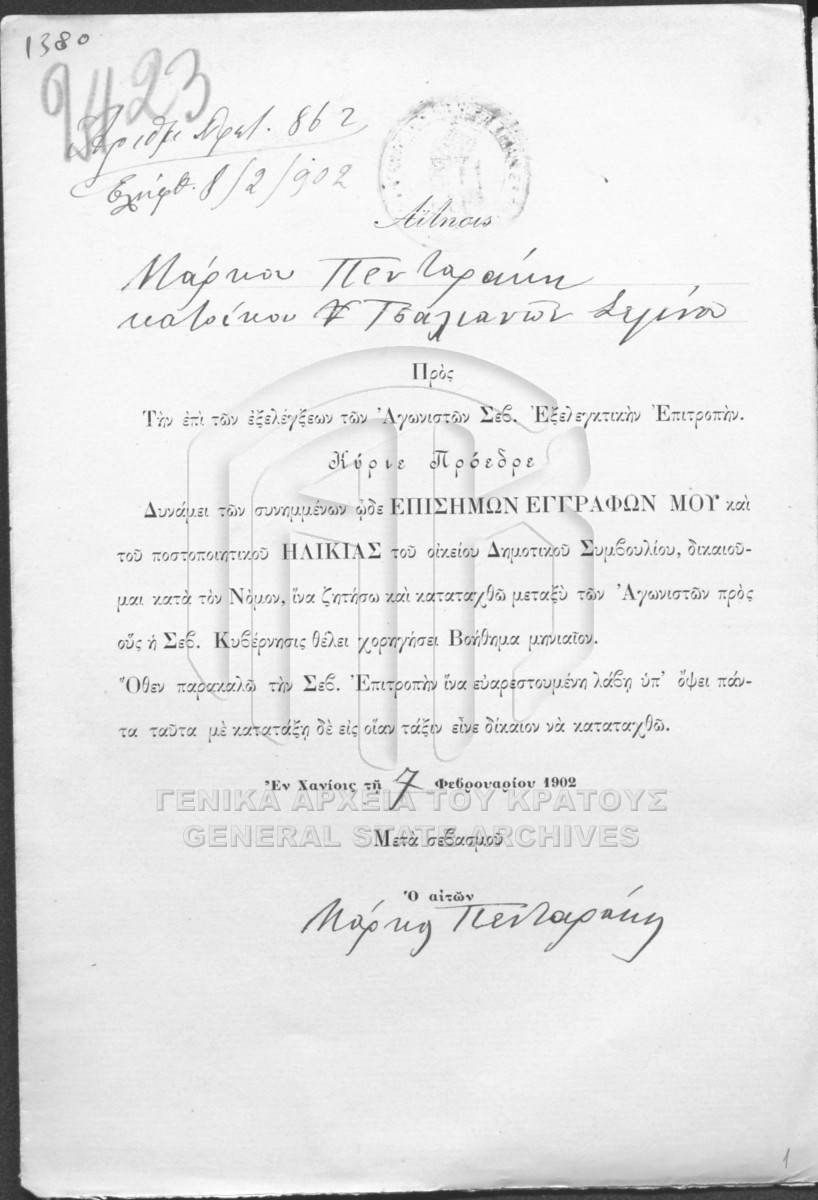 1380
9423
Αριθμ. Πρωτ. 862
Ελήφθ. 8/2/902
Αἴτησις
Μάρκου Πενταράκη
κατοίκου Τσαλιανῶν Σελίνου
Πρὸς
Τὴν ἐπὶ τῶν ἐξελέγξεων τῶν Ἀγωνιστῶν Σεβ. Ἐξελεγκτικὴν Ἐπιτροπήν.
Κύριε Πρόεδρε
Δυνάμει τῶν συνημμένων ᾧδε ΕΠΙΣΗΜΩΝ ΕΓΓΡΑΦΩΝ ΜΟΥ καὶ
τοῦ ποστοποιητικοῦ ΗΛΙΚΙΑΣ τοῦ οἰκείου Δημοτικοῦ Συμβουλίου, δικαιοῦ-
μαι κατὰ τὸν Νόμον, ἵνα ζητήσω καὶ καταταχθῶ μεταξὺ τῶν Ἀγωνιστῶν πρὸς
οὓς ἡ Σεβ. Κυβέρνησις θέλει χορηγήσει Βοήθημα μηνιαῖον.
Ὅθεν παρακαλῶ τὴν Σεβ. Ἐπιτροπὴν ἵνα εὐαρεστουμένη λάβῃ ὑπ' ὄψει πάν-
τα ταῦτα μὲ κατατάξῃ δὲ εἰς οἵαν τάξιν εἶνε δίκαιον νὰ καταταχθῶ.
Ἐν Χανίοις τῇ 7 Φεβρουαρίου 1902
ΓΕΝΙΚΑ ΑΡΧΕΙΑ ΤΟΥ ΚΡΑΤΟΥΣ
GENERAL STATE ARCHIVES
Μετὰ σεβασμοῦ
Ὁ αἰτῶν
Μάρκος Πενταράκης
1